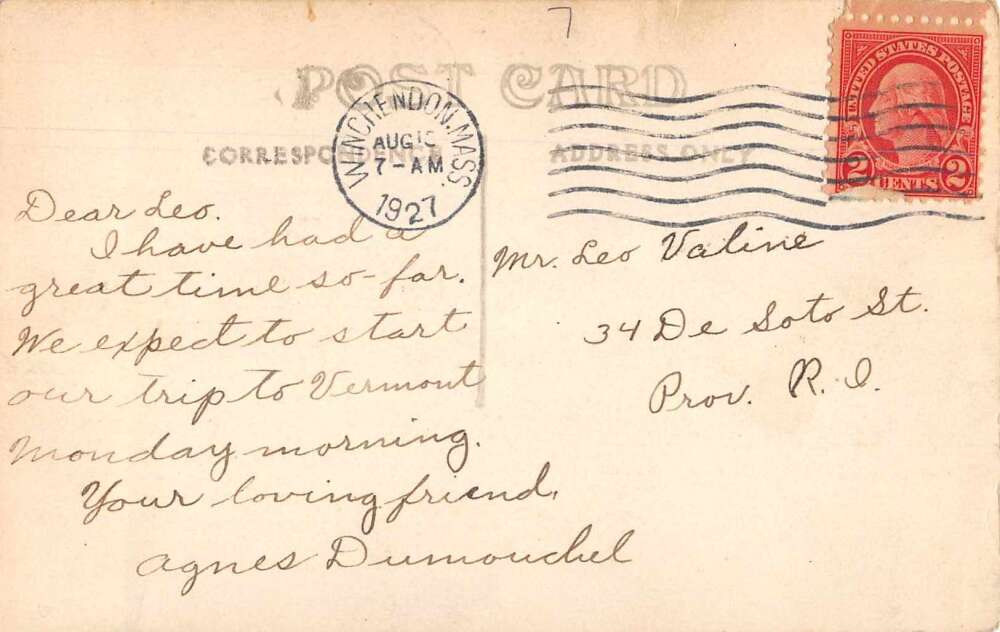 7
POST CARD
CORRESPONDENCE
ADDRESS ONLY
WINCHENDON, MASS.
AUG
7-AM
1927
UNITED STATES POSTAGE
2 CENTS 2
Dear Leo.
I have had a
great time so-far.
We expect to start
our trip to Vermont
Monday morning.
Your loving friend,
Agnes Dumouchel
Mr. Leo Valine
34 De Soto St.
Prov. R. I.